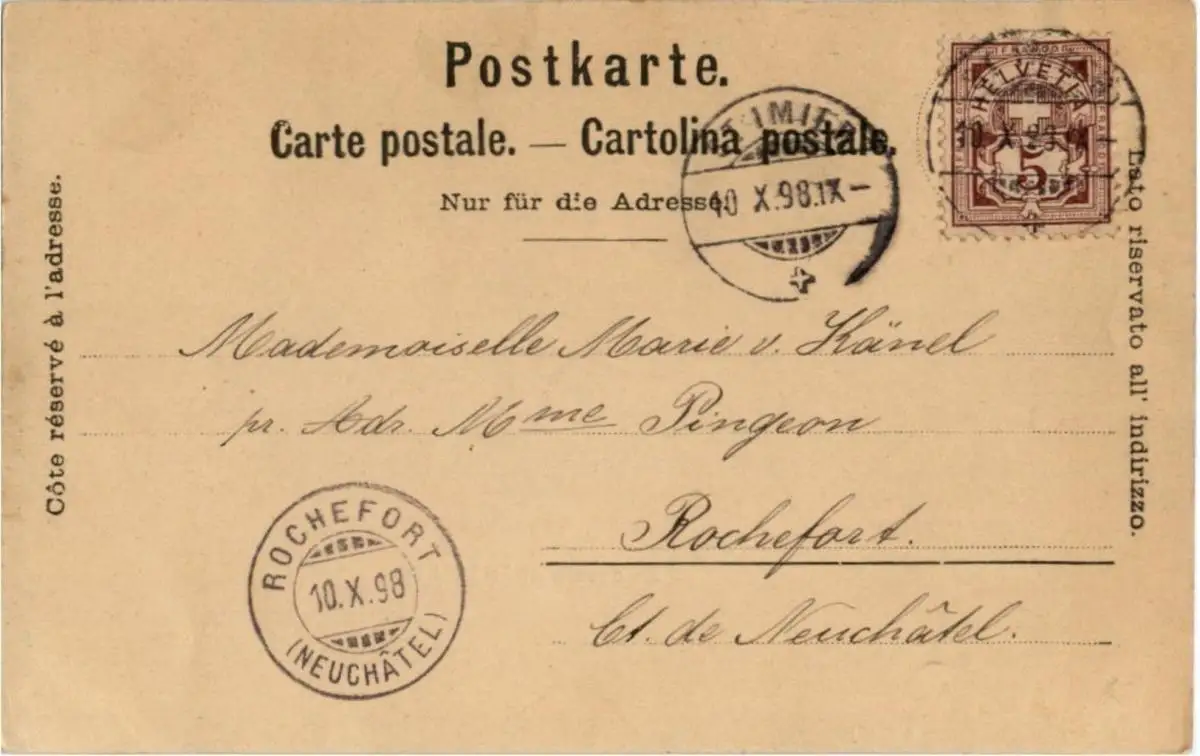 Postkarte.
Carte postale. — Cartolina postale.
Nur für die Adresse.
Côte réservé à l'adresse.
Lato riservato all' indirizzo.
FRANCO
HELVETIA
5
10 X 98
ST IMIER
10 X.98.IX–
Mademoiselle Marie v. Känel
pr. Adr. Mme Pingeon
Rochefort.
Ct. de Neuchâtel.
ROCHEFORT
10.X.98
(NEUCHÂTEL)